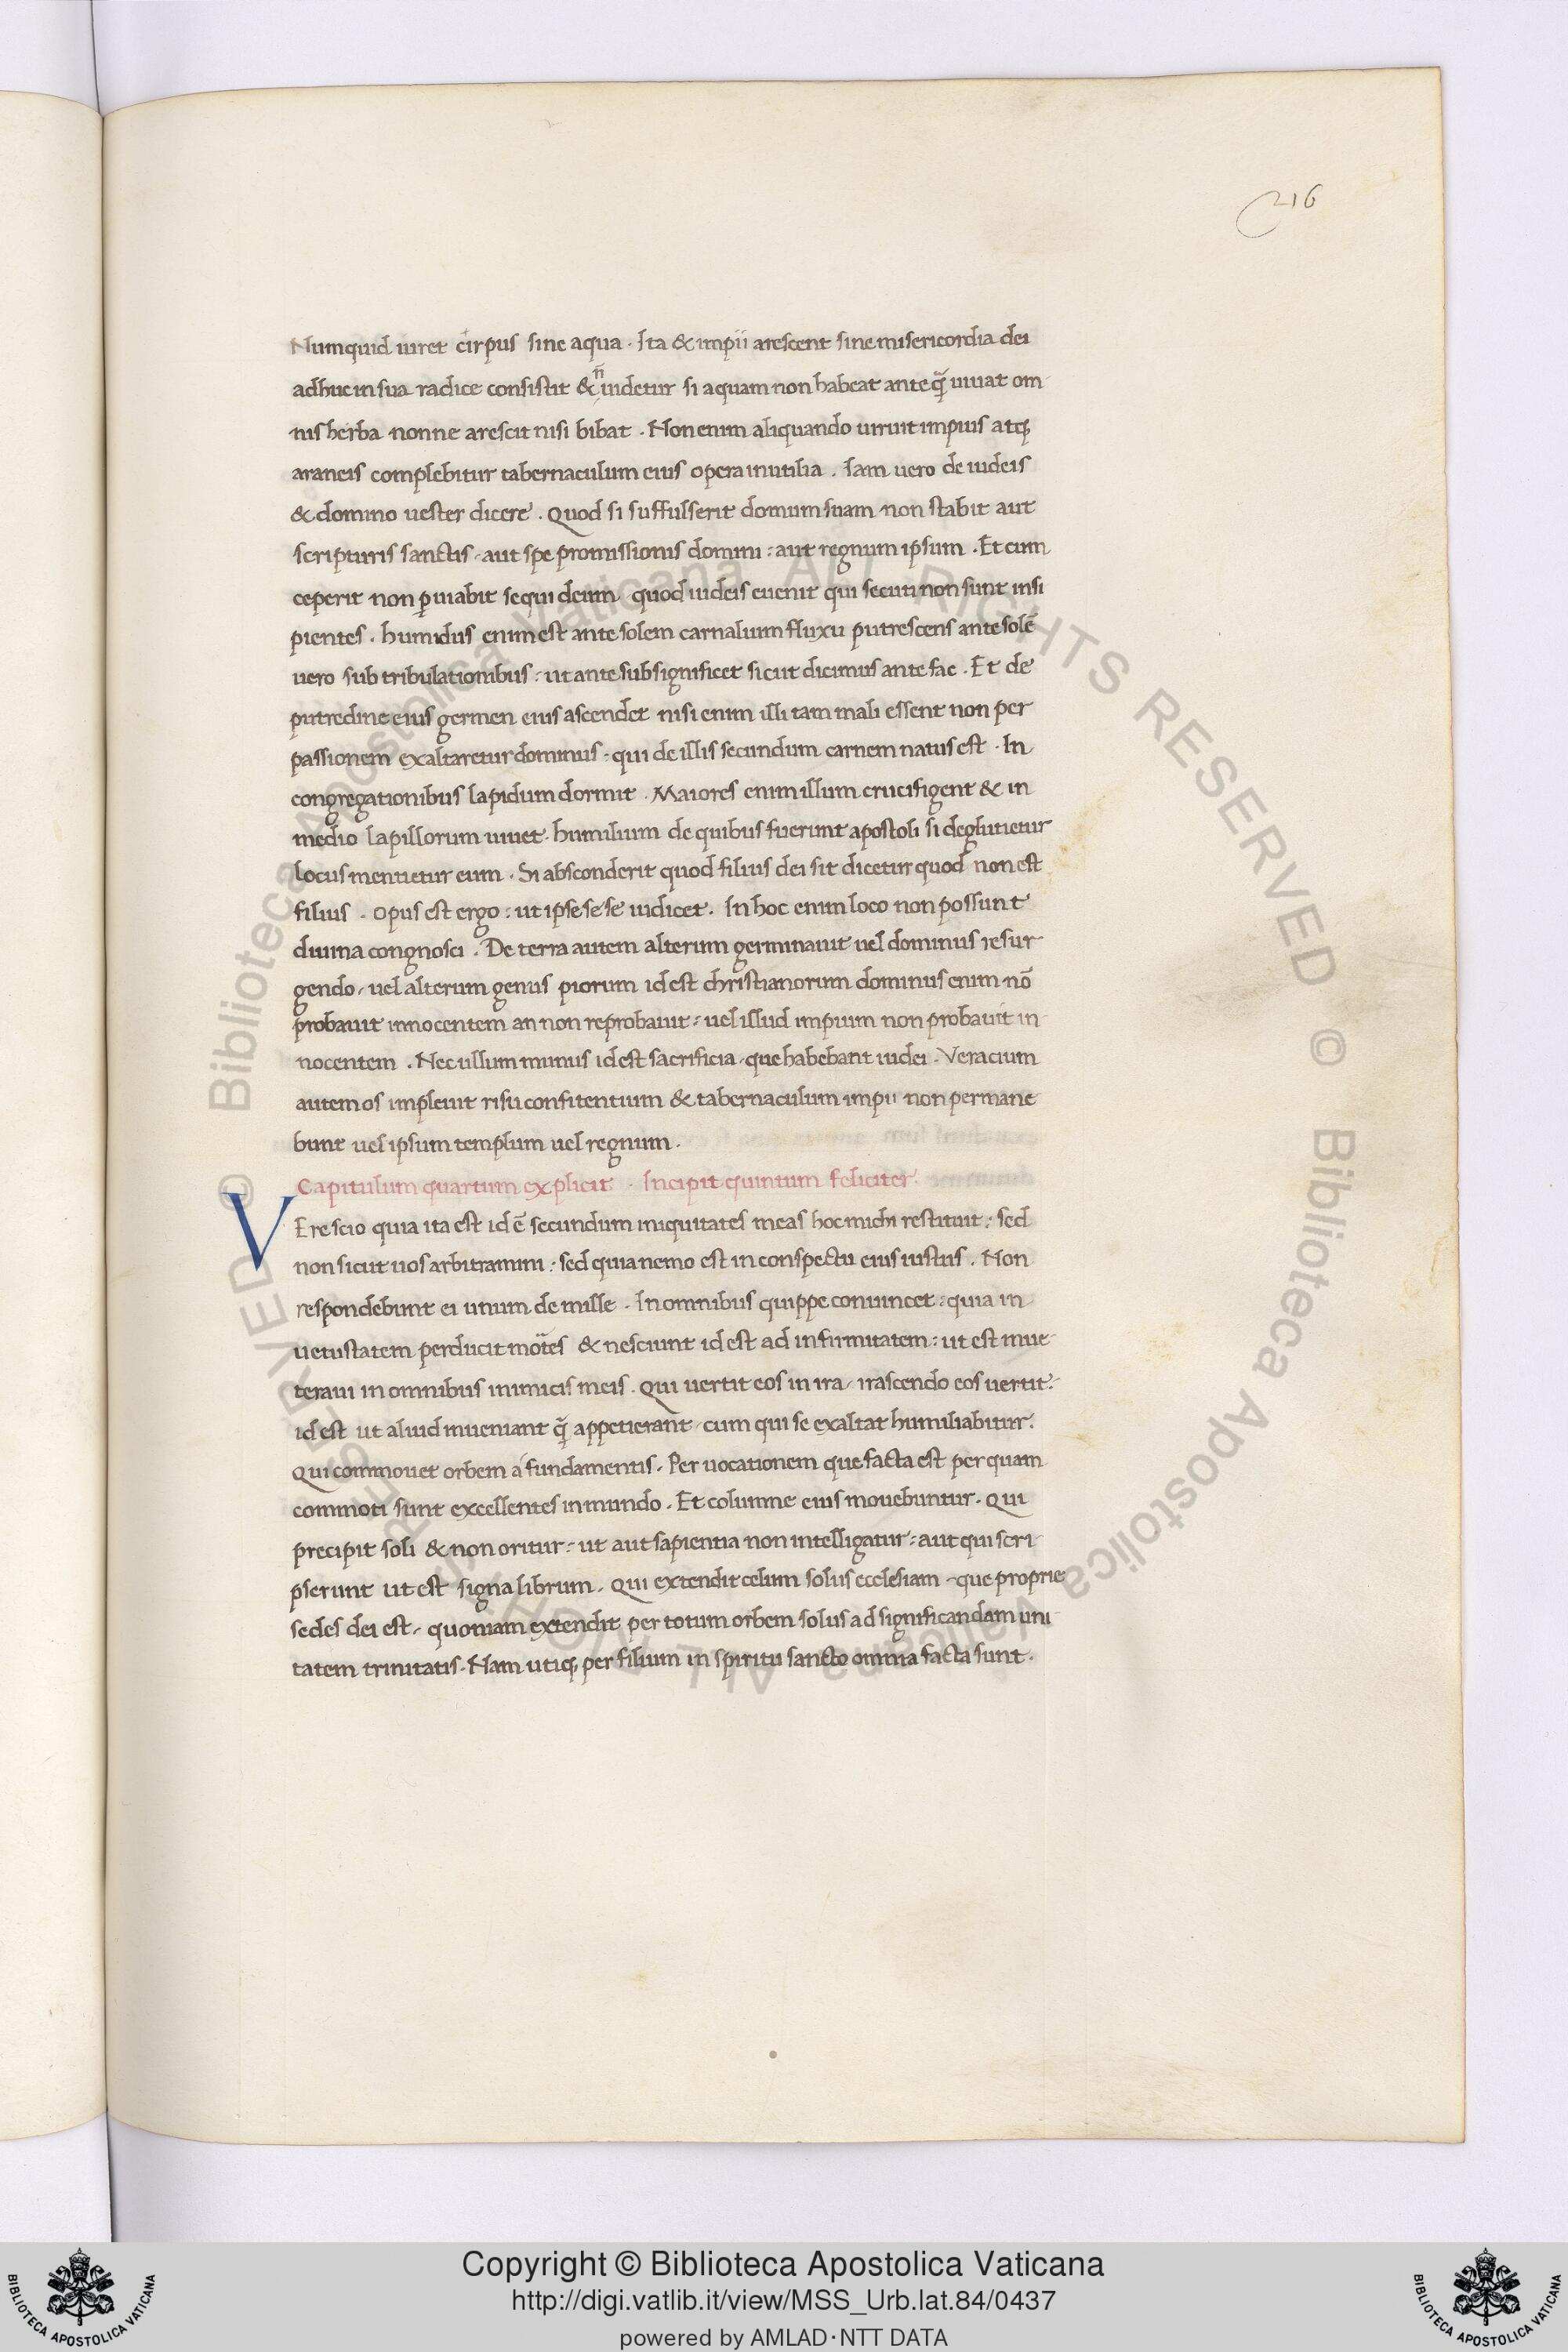 216
Numquid uiret cirpus sine aqua . Ita & impii arescent sine misericordia dei
adhuc in sua radice consistit & n̄ uidetur si aquam non habeat ante q̄ uiuat om
nis herba nonne arescit nisi bibat . Non enim aliquando uiruit impius atq;
araneis complebitur tabernaculum eius opera inutilia . Iam uero de iudeis
& domino uester dicere . Quod si suffulserit domum suam non stabit aut
scripturis sanctis . aut spe promissionis domini : aut regnum ipsum . Et cum
ceperit non puiabit sequi deum quod iudeis euenit qui secuti non sunt insi
pientes . humidus enim est ante solem carnalium fluxu putrescens ante solē
uero sub tribulationibus : ut ante sub significet sicut dicimus ante fac . Et de
putredine eius germen eius ascendet nisi enim illi tam mali essent non per
passionem exaltaretur dominus . qui de illis secundum carnem natus est . In
congregationibus lapidum dormit . Maiores enim illum crucifigent & in
medio lapillorum uiuet . humilium de quibus fuerunt apostoli si deglutietur
locus mentietur eum . Si absconderit quod filius dei sit dicetur quod non est
filius . opus est ergo : ut ipse se se iudicet . In hoc enim loco non possunt
diuina congnosci . De terra autem alterum germinauit uel dominus resur
gendo . uel alterum genus piorum id est christianorum dominus enim nō
probauit innocentem an non reprobauit : uel illud impium non probauit in
nocentem . Nec ullum munus id est sacrificia . que habebant iudei . Veracium
autem os impleuit risu confitentium & tabernaculum impii non permane
bunt uel ipsum templum uel regnum .
Capitulum quartum explicit . Incipit quintum feliciter .
VEre scio quia ita est id ē secundum iniquitates meas hoc michi restituit : sed
non sicut uos arbitramini : sed quia nemo est in conspectu eius iustus . Non
respondebunt ei unum de mille . In omnibus quippe conuincet : quia in
uetustatem perducit mōtes & nesciunt id est ad infirmitatem : ut est inue
teraui in omnibus inimicis meis . Qui uertit eos in ira . irascendo eos uertit .
id est ut aliud inueniant q̄ appetierant . cum qui se exaltat humiliabitur .
Qui commouet orbem a fundamentis . Per uocationem que facta est per quam
commoti sunt excellentes in mundo . Et columne eius mouebuntur . Qui
precipit soli & non oritur : ut aut sapientia non intelligatur : aut qui scri
pserunt ut est signa librum . Qui extendit celum solus ecclesiam . que proprie
sedes dei est . quoniam extendit per totum orbem solus ad significandam uni
tatem trinitatis . Nam utiq; per filium in spiritu sancto omnia facta sunt .
© Biblioteca Apostolica Vaticana ALL RIGHTS RESERVED © Biblioteca Apostolica Vaticana ALL RIGHTS RESERVED
BIBLIOTECA APOSTOLICA VATICANA
Copyright © Biblioteca Apostolica Vaticana
http://digi.vatlib.it/view/MSS_Urb.lat.84/0437
powered by AMLAD·NTT DATA
BIBLIOTECA APOSTOLICA VATICANA